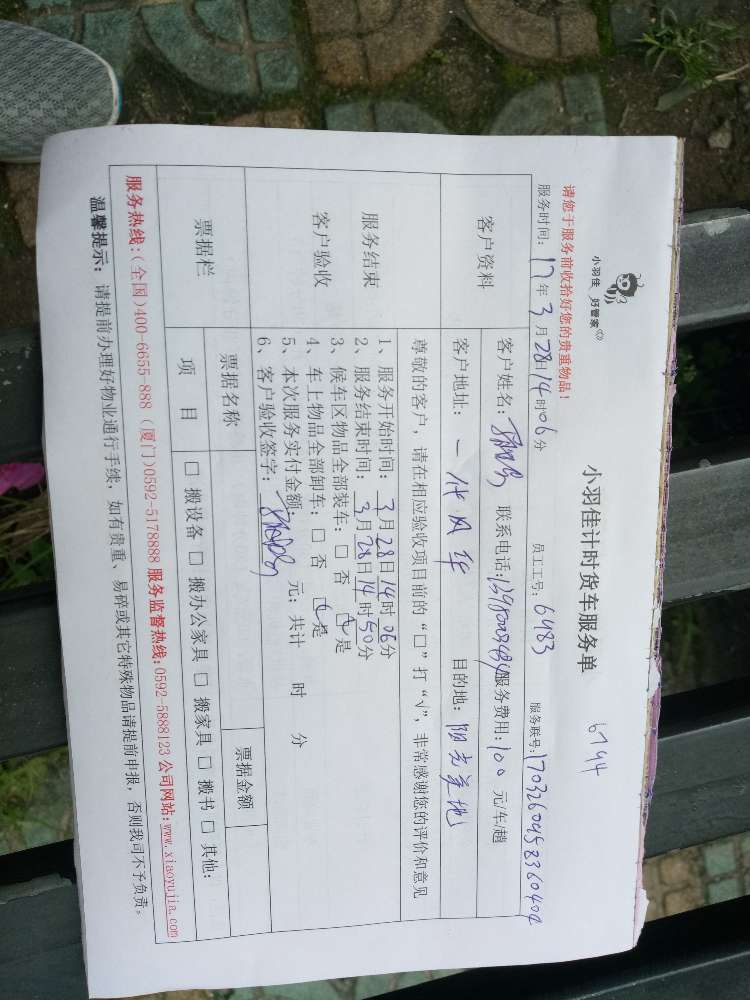 小羽佳 好管家
小羽佳计时货车服务单
6794
请您于服务前收拾好您的贵重物品！
服务时间：17年3月28日14时06分 员工工号：6983 服务联号：1703260958360404
客户资料
客户姓名： 联系电话： 服务费用：100 元/车/趟
客户地址：一代风华 目的地：阳光美地
尊敬的客户，请在相应验收项目前的“□”打“√”，非常感谢您的评价和意见
服务结束
客户验收
1、服务开始时间：3月28日14时06分
2、服务结束时间：3月28日14时50分
3、候车区物品全部装车：□ 否 □ 是
4、车上物品全部卸车：□ 否 □ 是
5、本次服务实付金额： 元；共计 时 分
6、客户验收签字：
票据栏
票据名称 票据金额
项 目 □ 搬设备 □ 搬办公家具 □ 搬家具 □ 搬书 □ 其他：
服务热线：（全国）400-6655-888（厦门）0592-5178888 服务监督热线：0592-5888123 公司网站：www.xiaoyujia.com
温馨提示：请提前办理好物业通行手续，如有贵重、易碎或其它特殊物品请提前申报，否则我司不予负责。